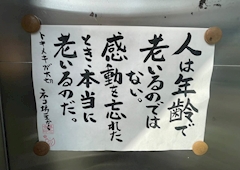 人は年齢で
老いるのでは
ない。
感動を忘れた
とき、本当に
老いるのだ。
トキメキが大切